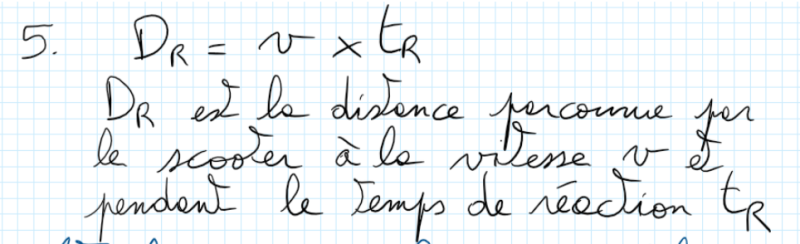 5. D_R = v × t_R
D_R est la distance parcourue par
le scooter à la vitesse v et
pendant le temps de réaction t_R